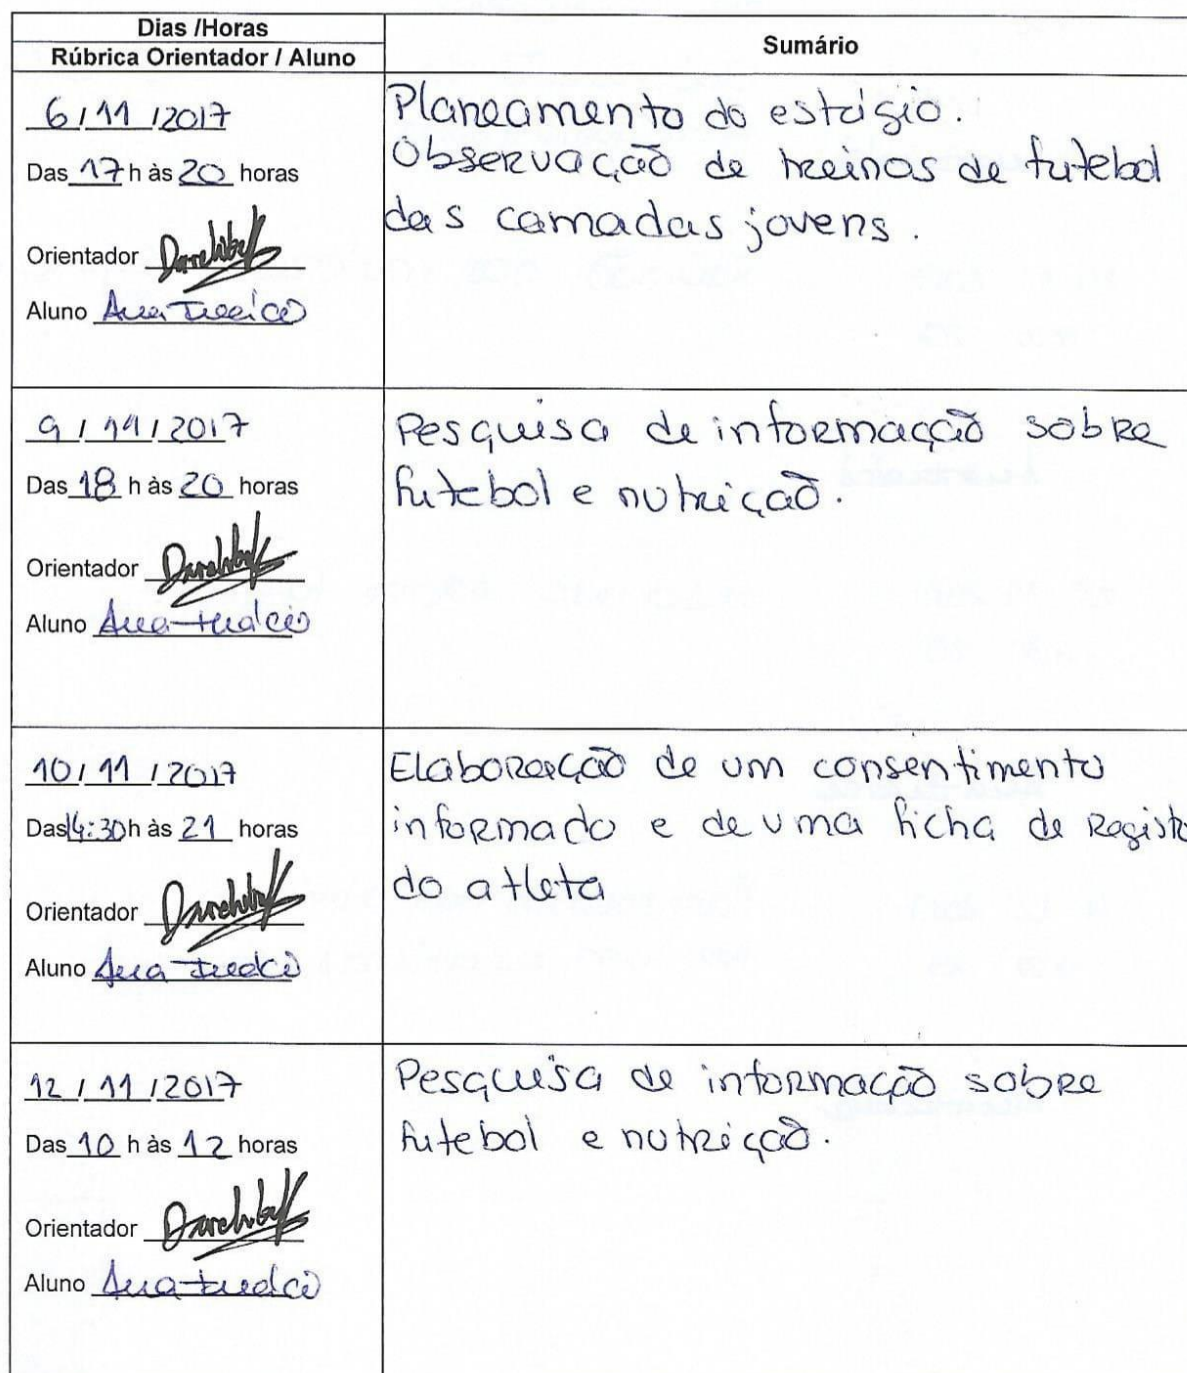 Dias /Horas
Rúbrica Orientador / Aluno
Sumário
6/11/2017
Das 17 h às 20 horas
Orientador
Aluno Ana
Planeamento do estágio.
Observação de treinos de futebol
das camadas jovens.
9/11/2017
Das 18 h às 20 horas
Orientador
Aluno Ana
Pesquisa de informação sobre
futebol e nutrição.
10/11/2017
Das 14:30h às 21 horas
Orientador
Aluno Ana
Elaboração de um consentimento
informado e de uma ficha de Registo
do atleta
12/11/2017
Das 10 h às 12 horas
Orientador
Aluno Ana
Pesquisa de informação sobre
futebol e nutrição.